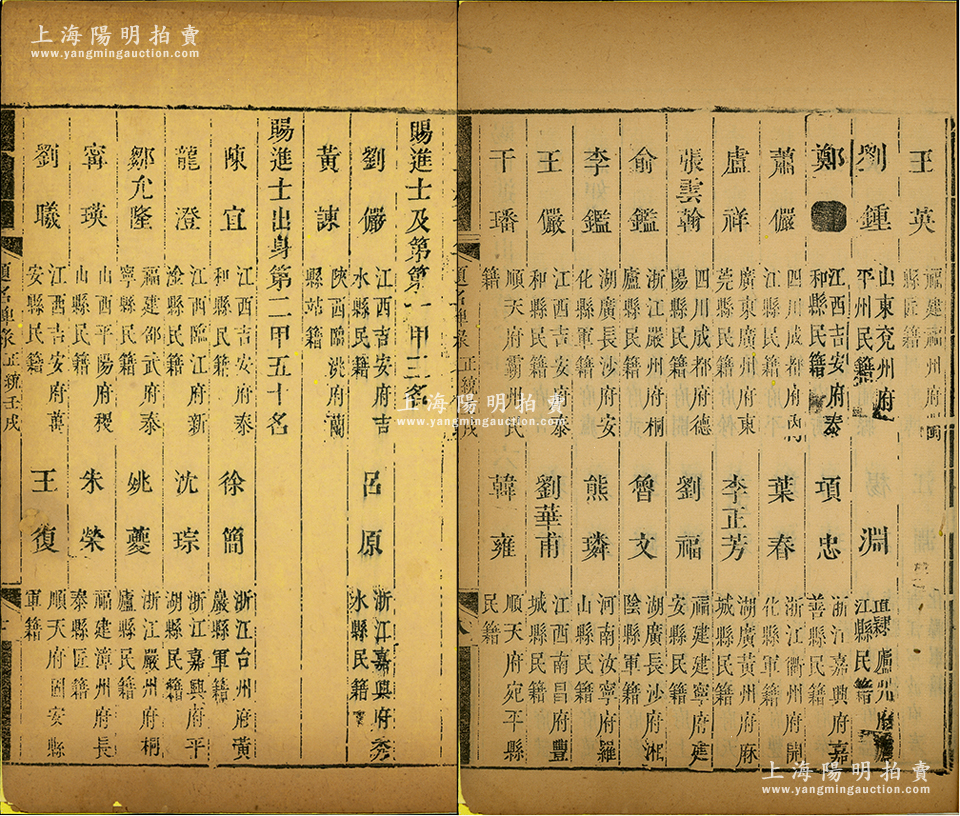 上海陽明拍賣
www.yangmingauction.com
王英
福建福州府閩
縣匠籍
劉鍾
山東兗州府
平州民籍
淵
直隸廬州府
江縣民籍
鄭
江西吉安府泰
和縣民籍
項忠
浙江嘉興府嘉
善縣民籍
蕭儼
四川成都府內
江縣民籍
葉春
浙江衢州府開
化縣匠籍
盧祥
廣東廣州府東
莞縣民籍
李正芳
湖廣黃州府麻
城縣民籍
張雲翰
四川成都府德
陽縣民籍
劉福
福建建寧府建
安縣民籍
俞鑑
浙江嚴州府桐
廬縣民籍
魯文
湖廣長沙府湘
陰縣軍籍
李鑑
湖廣長沙府安
化縣軍籍
熊璘
河南汝寧府羅
山縣民籍
王儼
江西吉安府泰
和縣民籍
劉華甫
江西南昌府豐
城縣民籍
干璠
順天府霸州民
籍
韓雍
順天府宛平縣
民籍
題名碑录 正統壬戌 八
賜進士及第第一甲三名
劉儼
江西吉安府吉
水縣民籍
呂原
浙江嘉興府秀
水縣民籍
黃諫
陝西臨洮府蘭
縣站籍
賜進士出身第二甲五十名
陳宜
江西吉安府泰
和縣民籍
徐簡
浙江台州府黃
巖縣軍籍
龍澄
江西臨江府新
淦縣民籍
沈琮
浙江嘉興府平
湖縣民籍
鄒允隆
福建邵武府泰
寧縣民籍
姚夔
浙江嚴州府桐
廬縣民籍
甯瑛
山西平陽府稷
山縣民籍
朱榮
福建漳州府長
泰縣匠籍
劉巘
江西吉安府萬
安縣民籍
王復
順天府固安縣
軍籍
題名碑录 正統壬戌
上海陽明拍賣
www.yangmingauction.com
上海陽明拍賣
www.yangmingauction.com